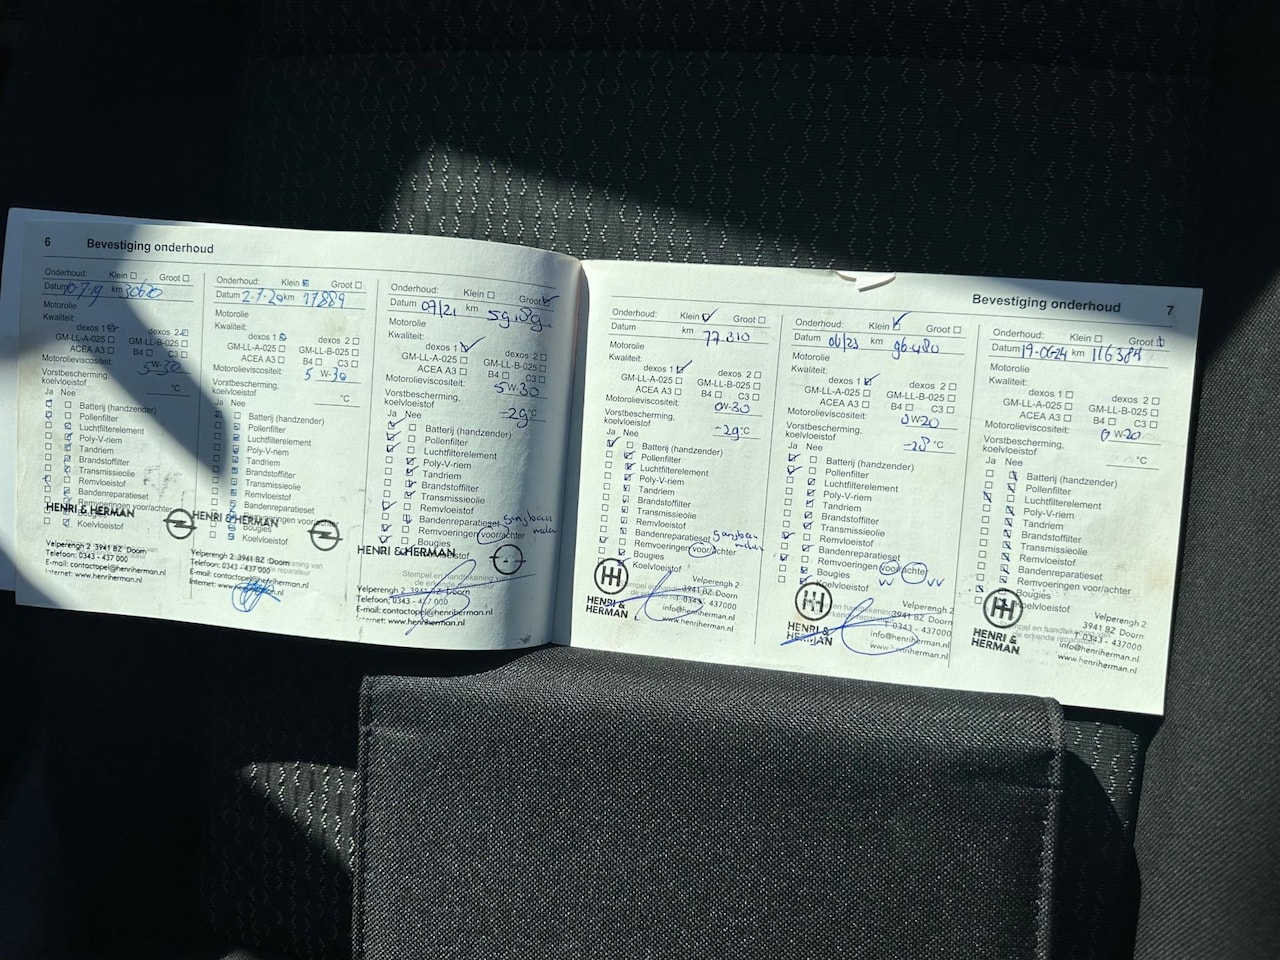 6 Bevestiging onderhoud
Onderhoud: Klein Groot
Datum 10-7-19 km 30620
Motorolie
Kwaliteit:
dexos 1 dexos 2
GM-LL-A-025 GM-LL-B-025
ACEA A3 B4 C3
Motorolieviscositeit: 5W-30
Vorstbescherming, koelvloeistof °C
Ja Nee
Batterij (handzender)
Pollenfilter
Luchtfilterelement
Poly-V-riem
Tandriem
Brandstoffilter
Transmissieolie
Remvloeistof
Bandenreparatieset
Remvoeringen voor/achter
Koelvloeistof
HENRI & HERMAN
Velperengh 2, 3941 BZ Doorn
Telefoon: 0343 - 437 000
E-mail: contactopel@henriherman.nl
Internet: www.henriherman.nl
Onderhoud: Klein Groot
Datum 2-7-20 km
Motorolie
Kwaliteit:
dexos 1 dexos 2
GM-LL-A-025 GM-LL-B-025
ACEA A3 B4 C3
Motorolieviscositeit: 5 W-30
Vorstbescherming, koelvloeistof °C
Ja Nee
Batterij (handzender)
Pollenfilter
Luchtfilterelement
Poly-V-riem
Tandriem
Brandstoffilter
Transmissieolie
Remvloeistof
Bandenreparatieset
Remvoeringen voor/achter
Bougies
Koelvloeistof
HENRI & HERMAN
Velperengh 2, 3941 BZ Doorn
Telefoon: 0343 - 437 000
E-mail: contactopel@henriherman.nl
Onderhoud: Klein Groot
Datum 07/21 km
Motorolie
Kwaliteit:
dexos 1 dexos 2
GM-LL-A-025 GM-LL-B-025
ACEA A3 B4 C3
Motorolieviscositeit: 5W-30
Vorstbescherming, koelvloeistof -29°C
Ja Nee
Batterij (handzender)
Pollenfilter
Luchtfilterelement
Poly-V-riem
Tandriem
Brandstoffilter
Transmissieolie
Remvloeistof
Bandenreparatieset
Remvoeringen voor/achter
Bougies
Koelvloeistof
HENRI & HERMAN
Stempel en handtekening van
de erkende reparateur
Velperengh 2, 3941 BZ Doorn
Telefoon: 0343 - 437 000
E-mail: contactopel@henriherman.nl
Internet: www.henriherman.nl
Bevestiging onderhoud 7
Onderhoud: Klein Groot
Datum km 77.310
Motorolie
Kwaliteit:
dexos 1 dexos 2
GM-LL-A-025 GM-LL-B-025
ACEA A3 B4 C3
Motorolieviscositeit: 0W-30
Vorstbescherming, koelvloeistof -29°C
Ja Nee
Batterij (handzender)
Pollenfilter
Luchtfilterelement
Poly-V-riem
Tandriem
Brandstoffilter
Transmissieolie
Remvloeistof
Bandenreparatieset
Remvoeringen voor/achter
Bougies
Koelvloeistof
HENRI &
HERMAN
Velperengh 2
3941 BZ Doorn
0343 - 437000
info@henriherman.nl
www.henriherman.nl
Onderhoud: Klein Groot
Datum 06/23 km 96.480
Motorolie
Kwaliteit:
dexos 1 dexos 2
GM-LL-A-025 GM-LL-B-025
ACEA A3 B4 C3
Motorolieviscositeit: 0W20
Vorstbescherming, koelvloeistof -28 °C
Ja Nee
Batterij (handzender)
Pollenfilter
Luchtfilterelement
Poly-V-riem
Tandriem
Brandstoffilter
Transmissieolie
Remvloeistof
Bandenreparatieset
Remvoeringen voor/achter
Bougies
Koelvloeistof
HENRI &
HERMAN
Velperengh 2
3941 BZ Doorn
T 0343 - 437000
info@henriherman.nl
www.henriherman.nl
Onderhoud: Klein Groot
Datum 19-06-24 km 116384
Motorolie
Kwaliteit:
dexos 1 dexos 2
GM-LL-A-025 GM-LL-B-025
ACEA A3 B4 C3
Motorolieviscositeit: 0 W-20
Vorstbescherming, koelvloeistof °C
Ja Nee
Batterij (handzender)
Pollenfilter
Luchtfilterelement
Poly-V-riem
Tandriem
Brandstoffilter
Transmissieolie
Remvloeistof
Bandenreparatieset
Remvoeringen voor/achter
Bougies
Koelvloeistof
HENRI &
HERMAN
Stempel en handtekening van
de erkende reparateur
Velperengh 2
3941 BZ Doorn
T 0343 - 437000
info@henriherman.nl
www.henriherman.nl